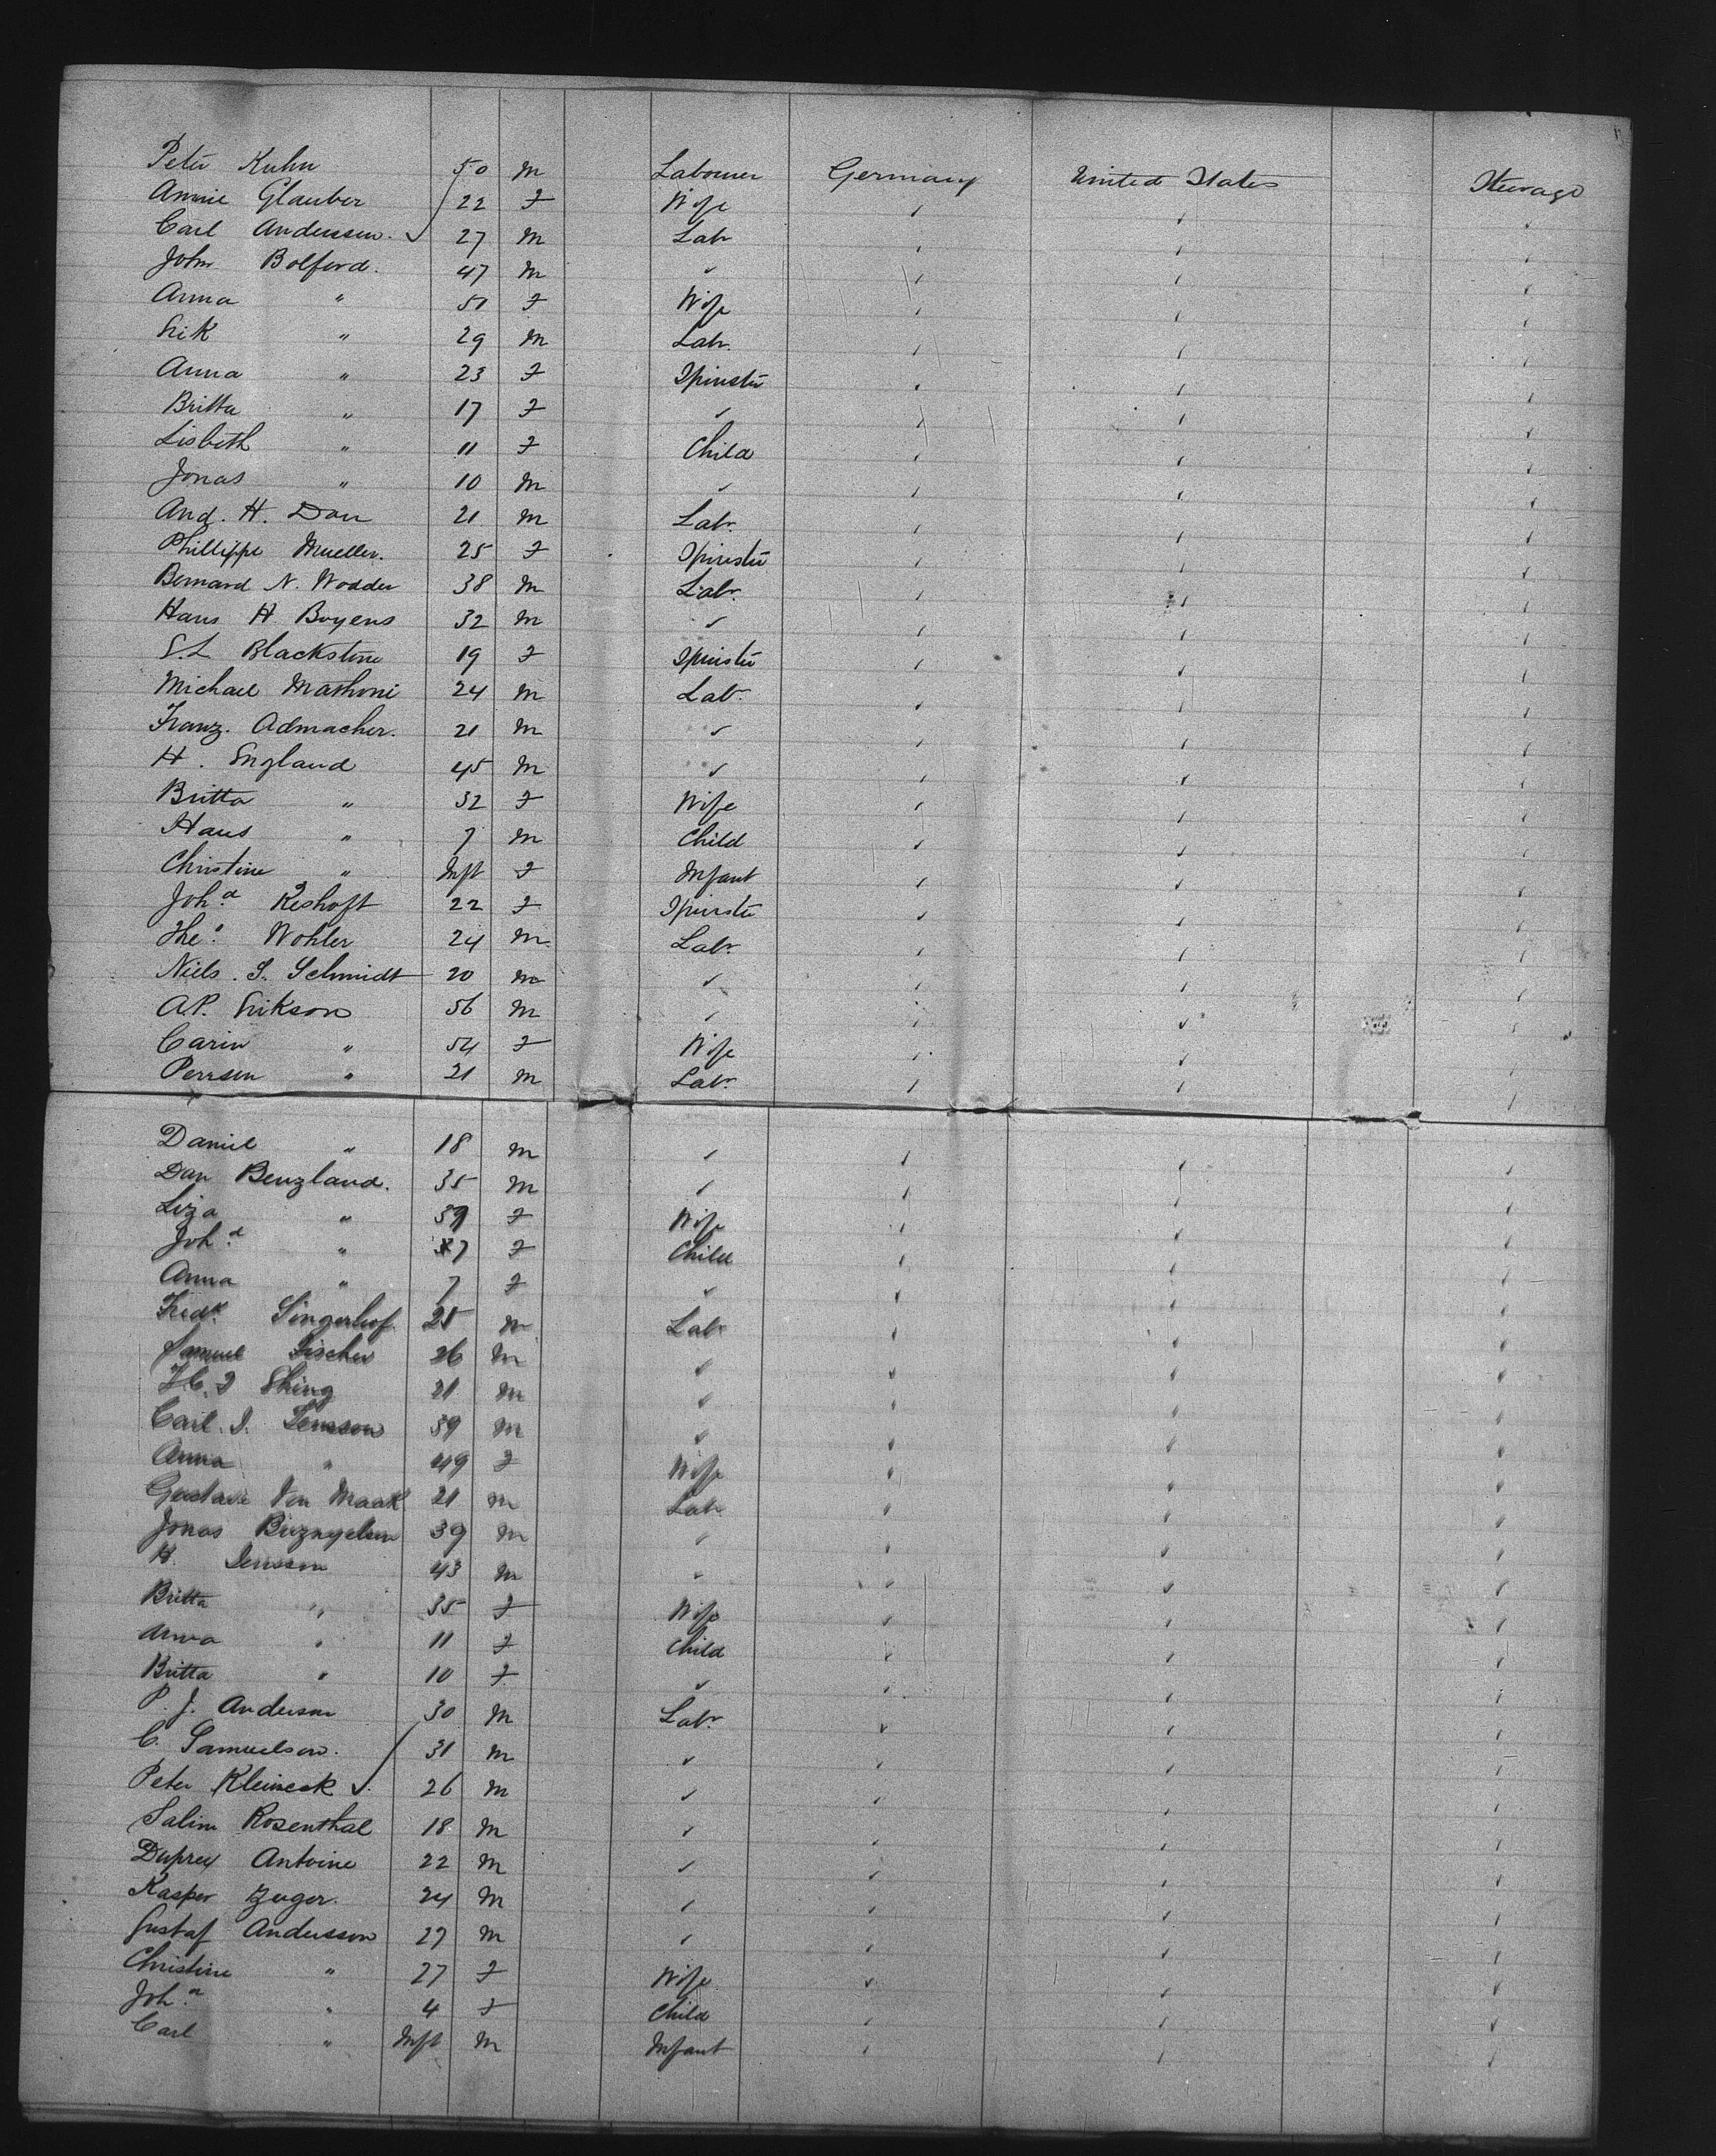 Peter Kuhn 50 m Labourer Germany United States Steerage
Annie Glauber 22 F Wife " " "
Carl Anderssen. 27 m Labr " " "
John Bolford. 47 m " " " "
Anna " 50 F Wife " " "
Erik " 29 m Labr. " " "
Anna " 23 F Spinster " " "
Britta " 17 F " " " "
Lisbeth " 11 F Child " " "
Jonas " 10 m " " " "
And. H. Dau 21 m Labr. " " "
Phillippe Mueller. 25 F Spinster " " "
Bernard N. Wodder 38 m Labr. " " "
Hans H Boyens 32 m " " " "
S.L Blackstine 19 F Spinster " " "
Michael Mathoni 24 m Labr. " " "
Franz. Admacher. 21 m " " " "
H. England 45 m " " " "
Britta " 32 F Wife " " "
Hans " 7 m Child " " "
Christine " Inft F Infant " " "
Joha Keshoft 22 F Spinster " " "
Theo. Wohler 24 m. Labr. " " "
Niels. S. Schmidt 20 m " " " "
A.P. Erikson 56 m " " " "
Carin " 54 F Wife " " "
Perssen " 21 m Labr. " " "
Daniel " 18 m " " " "
Dan Benzland. 35 m " " " "
Liza " 39 F Wife " " "
Joha " 7 F Child " " "
Anna " 7 F " " " "
Fredk. Singerhof. 25 m Labr " " "
Samuel Fischer 26 m " " " "
21 m " " " "
Carl. J. 39 m " " " "
Anna " 49 F Wife " " "
Gustave Von Maak 21 m Labr " " "
Jonas 39 m " " " "
H. Jensson 43 m " " " "
Britta " 35 F Wife " " "
Anna " 11 F Child " " "
Britta " 10 F " " " "
P. J. Anderson 30 m Labr. " " "
C. Samuelson. 31 m " " " "
Peter Kleineck 26 m " " " "
Salim Rosenthal 18 m " " " "
Duprey Antoine 22 m " " " "
Kasper Zuger. 24 m " " " "
Gustaf Andersson 27 m " " " "
Christine " 27 F Wife " " "
Joha " 4 F Child " " "
Carl " Inft m Infant " " "